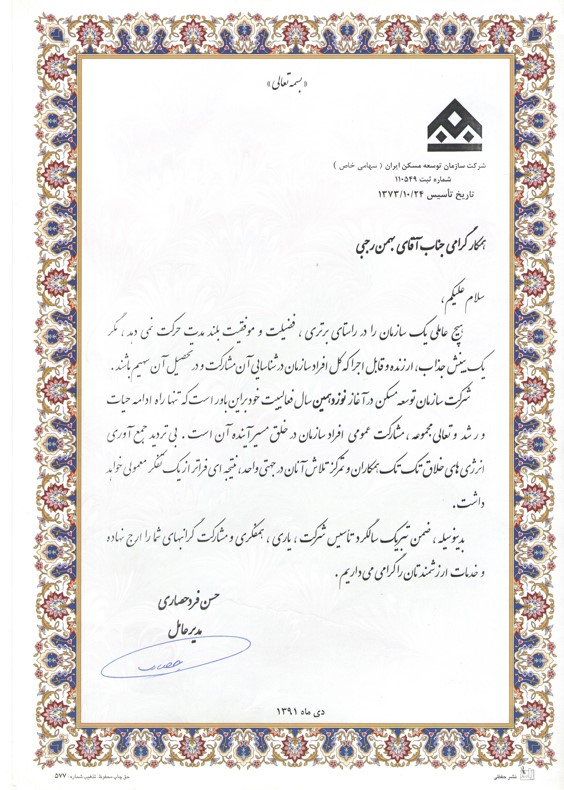 «بسمه تعالی»
شرکت سازمان توسعه مسکن ایران ( سهامی خاص )
شماره ثبت ۱۱۰۵۴۹
تاریخ تأسیس ۱۳۷۳/۱۰/۲۴
همکار گرامی جناب آقای بهمن رجبی
سلام علیکم ،
هیچ عاملی یک سازمان را در راستای برتری ، فضیلت و موفقیت بلند مدت حرکت نمی دهد ، مگر
یک بینش جذاب، ارزنده و قابل اجرا که کل افراد سازمان در شناسایی آن مشارکت و در تحصیل آن سهیم باشند .
شرکت سازمان توسعه مسکن در آغاز نوزدهمین سال فعالیت خود بر این باور است که تنها راه ادامه حیات
و رشد و تعالی مجموعه ، مشارکت عمومی افراد سازمان در خلق مسیر آینده آن است . بی تردید جمع آوری
انرژی های خلاق تک تک همکاران و تمرکز تلاش آنان در جهتی واحد، نتیجه ای فراتر از یک تفکر معمولی خواهد
داشت .
بدینوسیله ، ضمن تبریک سالگرد تاسیس شرکت ، یاری ، همفکری و مشارکت گرانبهای شما را ارج نهاده
و خدمات ارزشمندتان را گرامی می داریم .
حسن فرد حصاری
مدیر عامل
دی ماه ۱۳۹۱
نشر حافظی
حق چاپ محفوظ. تذهیب شماره: ۵۷۷